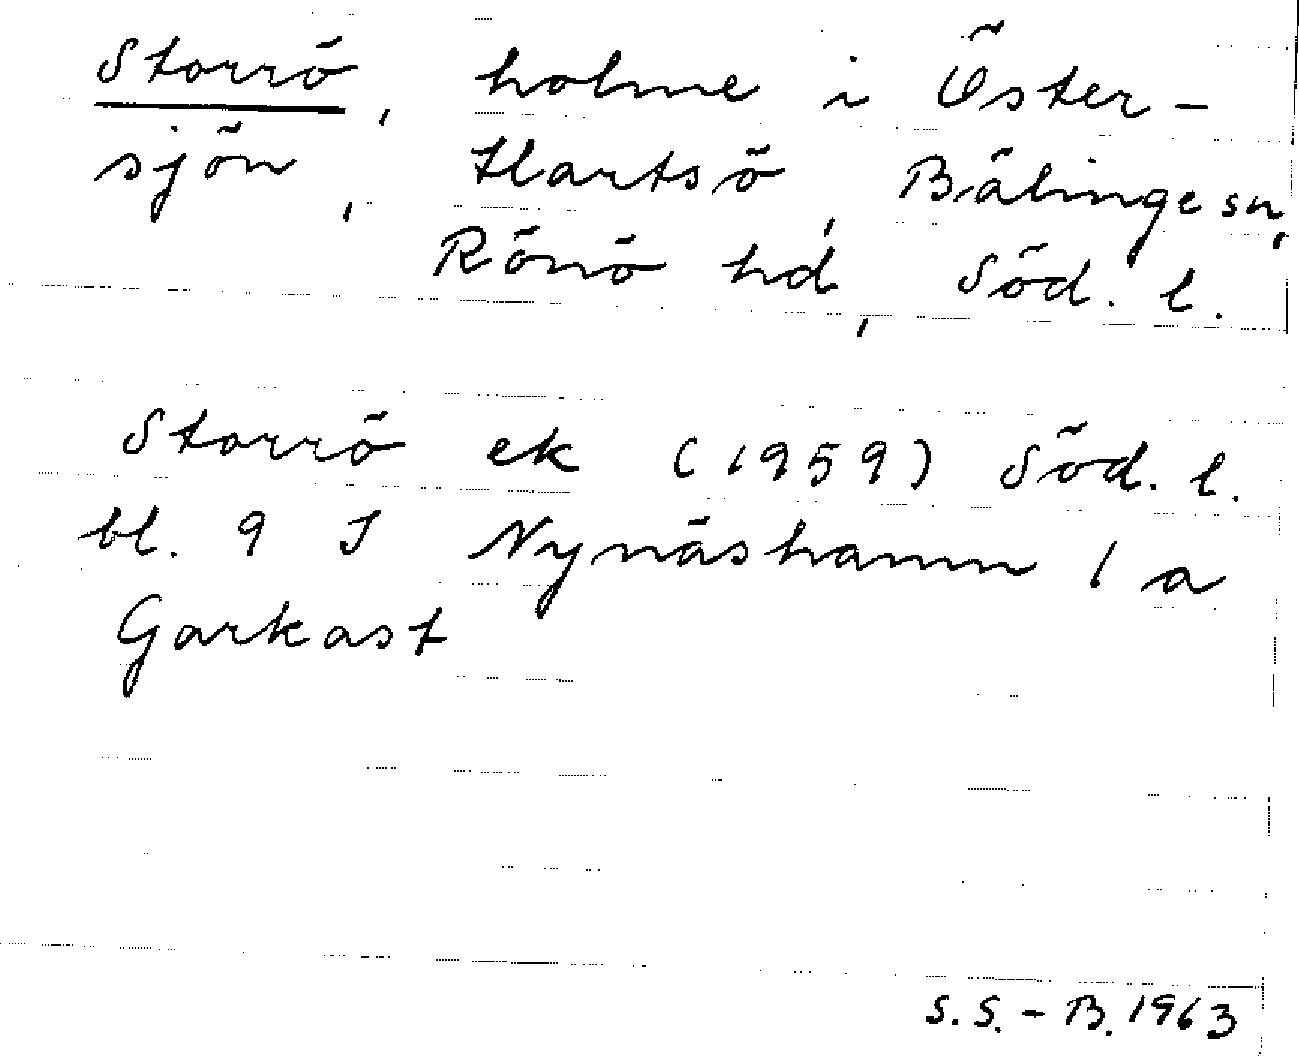 Storrö, holme i Öster-
sjön, Hartsö, Bälinge sn,
Rönö hd, Söd. l.
Storrö ek (1959) Söd. l.
bl. 9 I Nynäshamn 1 a
Garkast
S.S.-B. 1963